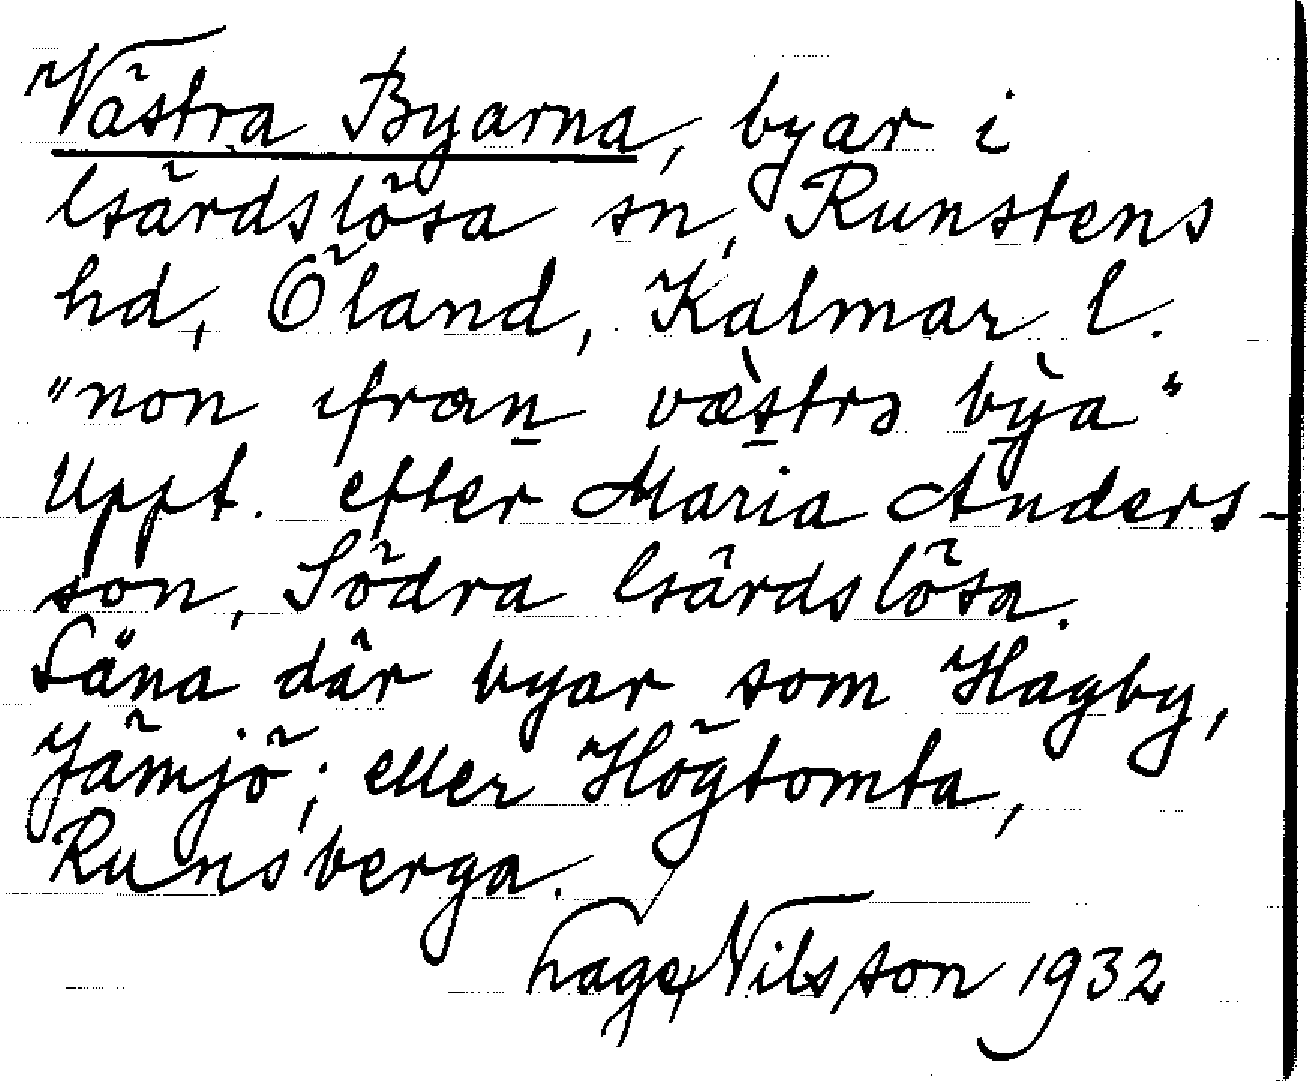 Västra Byarna, byar i
Gärdslösa sn, Runstens
hd, Öland, Kalmar l.
"non ifran væ̀strɔ bỳa"
Uppt. efter Maria Anders-
son, Södra Gärdslösa.
Såna där byar som Hagby,
Jämjö; eller Högtomta,
Runsberga.
Lage Nilsson 1932